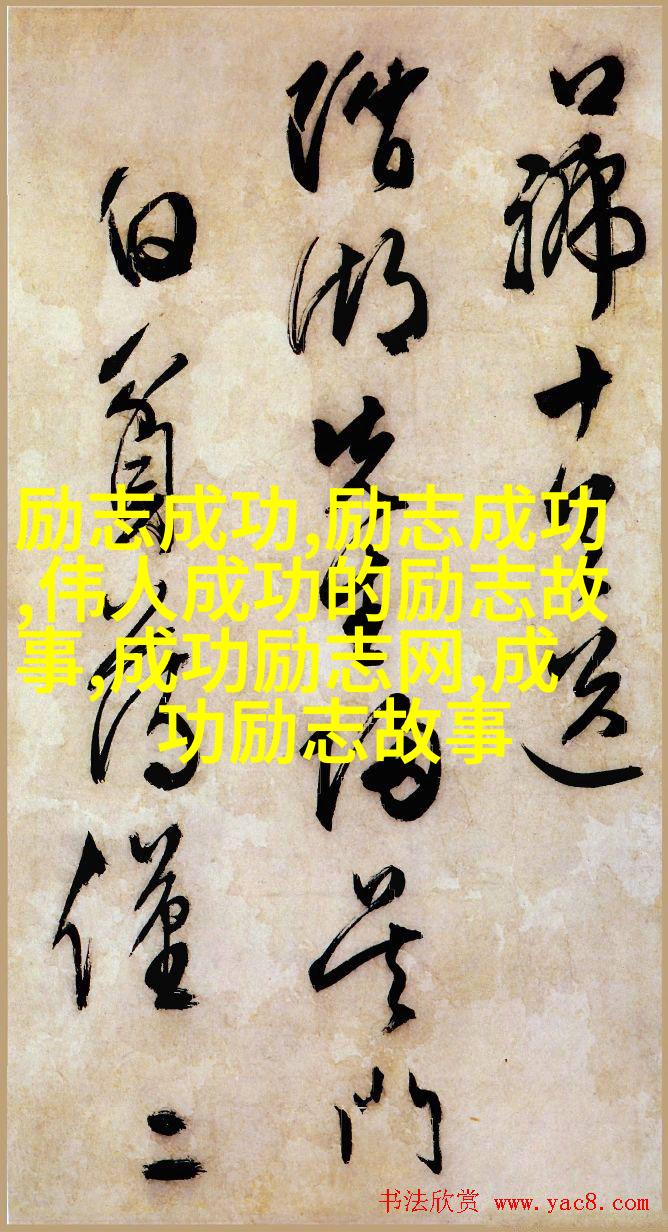 口號十送
湖先生歸吴門
白僅二
励志成功,励志成功
,伟人成功的励志故
事,成功励志网,成
功励志故事
书法欣赏 www.yac8.com